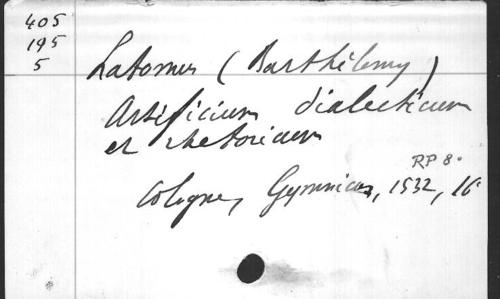 405
195
5
Latomus (Barthélemy)
Artificium dialecticum
et rhetoricum
RP 8°
Cologne, Gymnicus, 1532, 16°